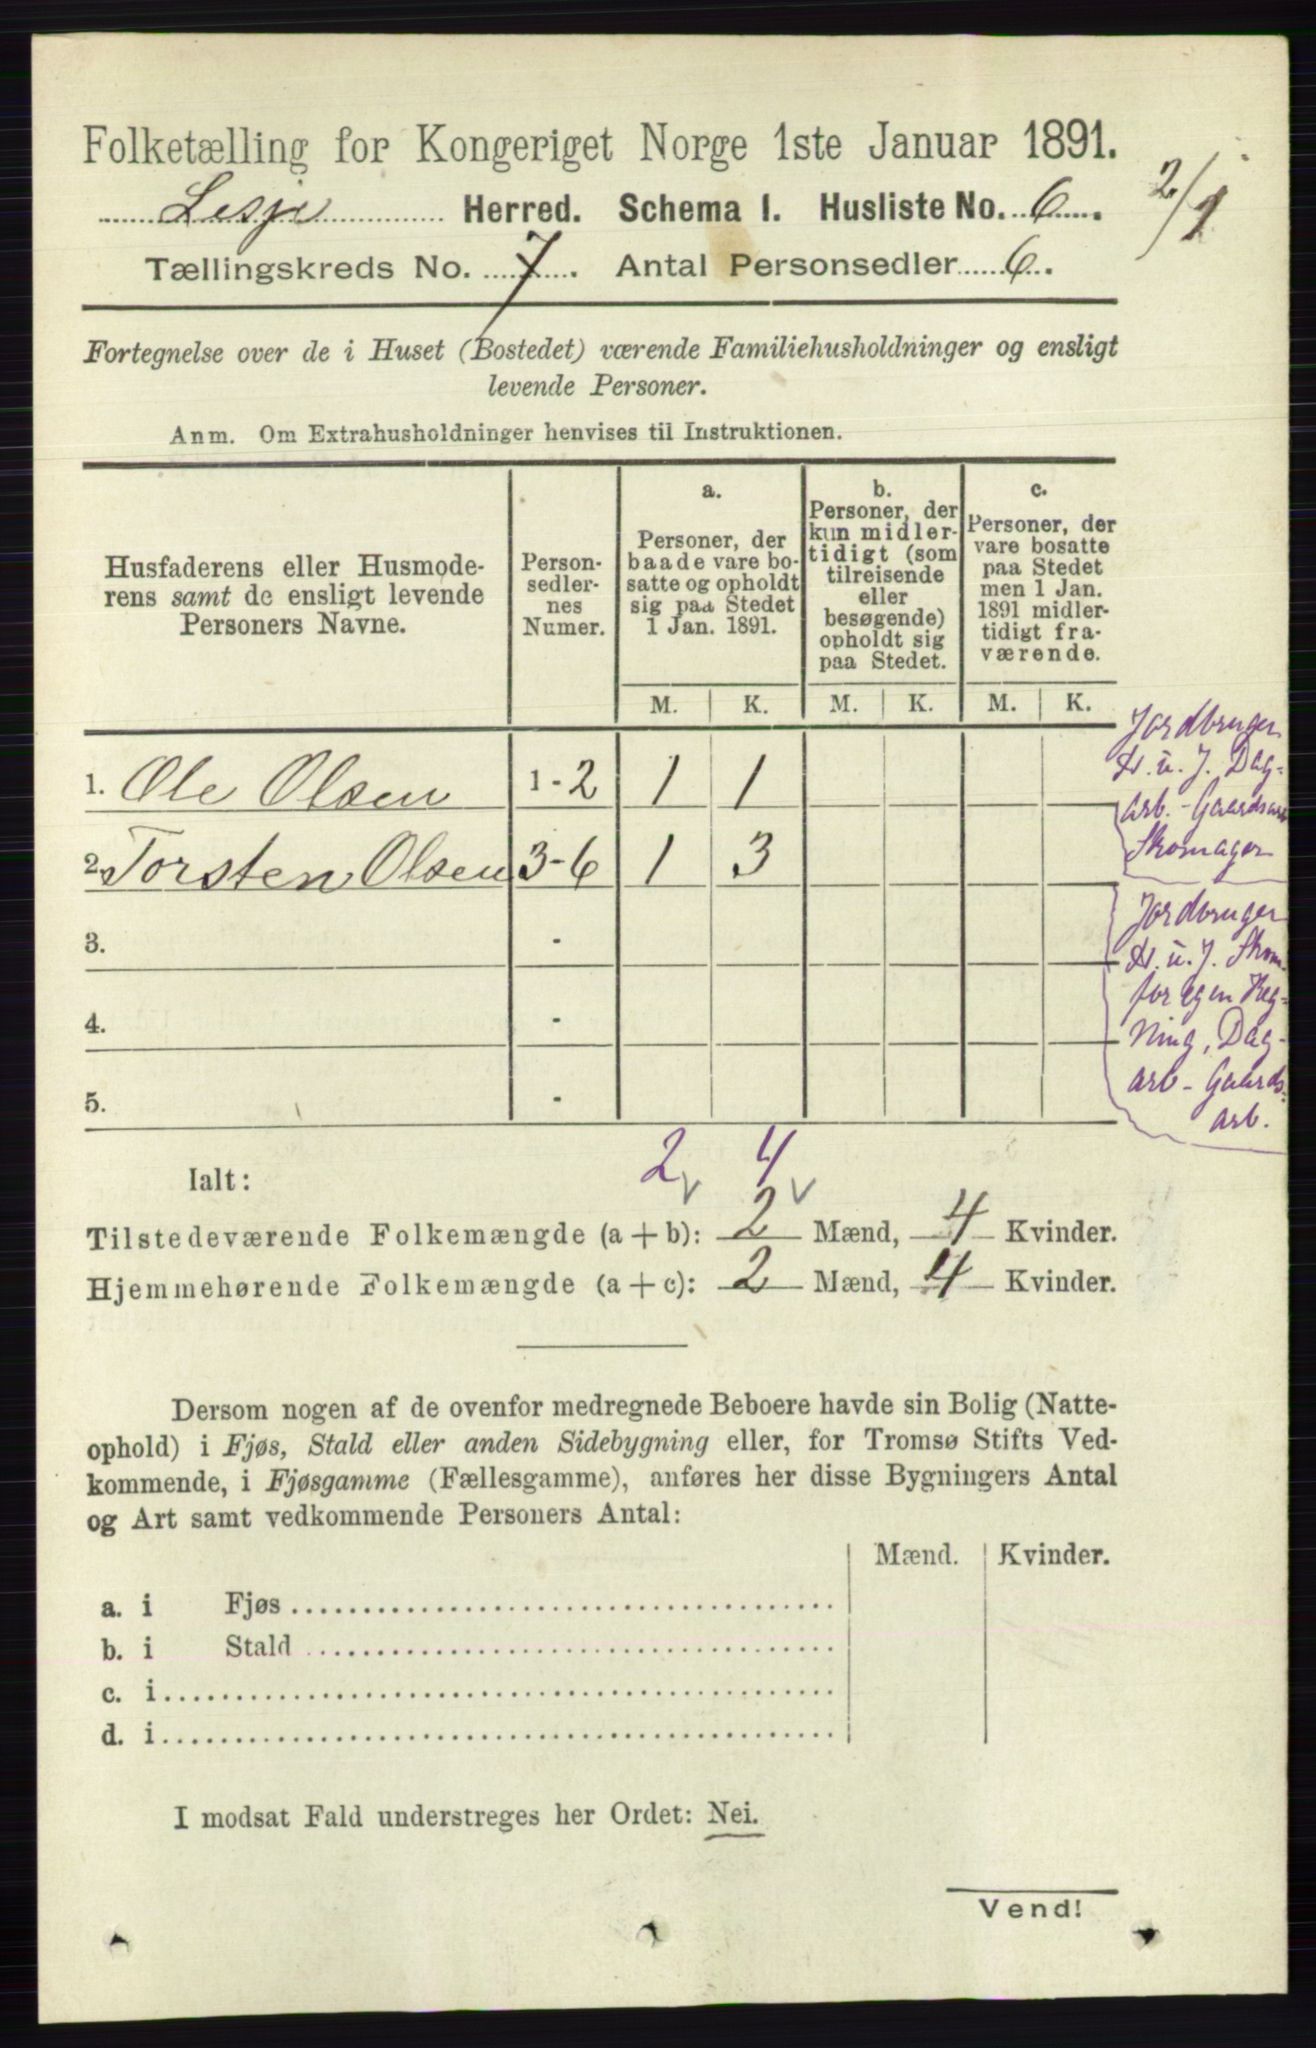 Folketælling for Kongeriget Norge 1ste Januar 1891.
Lesje Herred. Schema I. Husliste No. 6. 2/1
Tællingskreds No. 7. Antal Personsedler 6.
Fortegnelse over de i Huset (Bostedet) værende Familiehusholdninger og ensligt
levende Personer.
Anm. Om Extrahusholdninger henvises til Instruktionen.
Husfaderens eller Husmode-
rens samt de ensligt levende
Personers Navne.
Person-
sedler-
nes
Numer.
a.
Personer, der
baade vare bo-
satte og opholdt
sig paa Stedet
1 Jan. 1891.
b.
Personer, der
kun midler-
tidigt (som
tilreisende
eller
besøgende)
opholdt sig
paa Stedet.
c.
Personer, der
vare bosatte
paa Stedet
men 1 Jan.
1891 midler-
tidigt fra-
værende.
M. K. M. K. M. K.
1. Ole Olsen 1-2 1 1
2. Torsten Olsen 3-6 1 3
3. -
4. -
5. -
Jordbruger
u. J. Dag-
arb. - Gaardsarb
Skomager
Jordbruger
u. J. Skom.
for egen Reg-
ning, Dag-
arb - Gaards-
arb.
Ialt: 2 4
Tilstedeværende Folkemængde (a + b): 2 Mænd, 4 Kvinder.
Hjemmehørende Folkemængde (a + c): 2 Mænd, 4 Kvinder.
Dersom nogen af de ovenfor medregnede Beboere havde sin Bolig (Natte-
ophold) i Fjøs, Stald eller anden Sidebygning eller, for Tromsø Stifts Ved-
kommende, i Fjøsgamme (Fællesgamme), anføres her disse Bygningers Antal
og Art samt vedkommende Personers Antal:
Mænd. Kvinder.
a. i Fjøs
b. i Stald
c. i
d. i
I modsat Fald understreges her Ordet: Nei.
Vend!